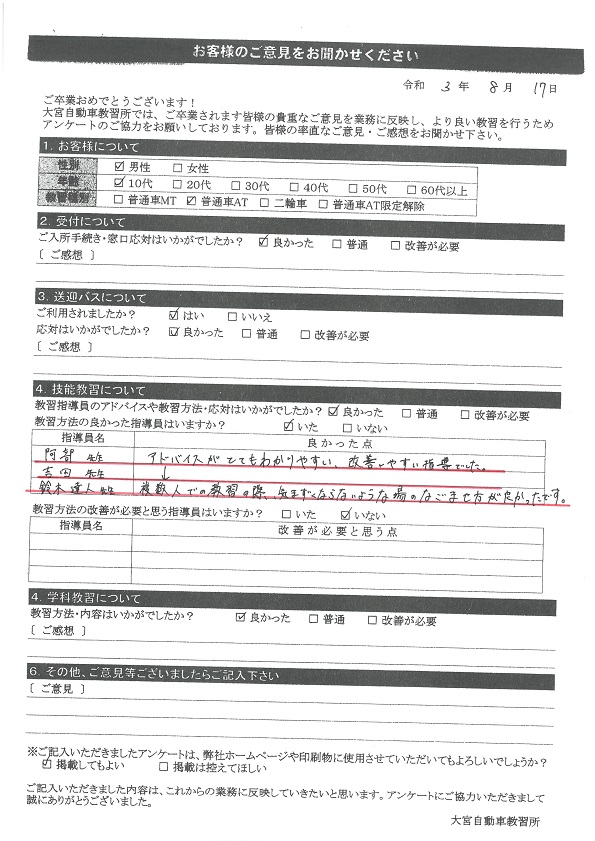 お客様のご意見をお聞かせください
令和 3 年 8 月 17 日
ご卒業おめでとうございます！
大宮自動車教習所では、ご卒業されます皆様の貴重なご意見を業務に反映し、より良い教習を行うため
アンケートのご協力をお願いしております。皆様の率直なご意見・ご感想をお聞かせ下さい。
1. お客様について
性別 ☑ 男性 □ 女性
年齢 ☑ 10代 □ 20代 □ 30代 □ 40代 □ 50代 □ 60代以上
教習種別 □ 普通車MT ☑ 普通車AT □ 二輪車 □ 普通車AT限定解除
2. 受付について
ご入所手続き・窓口応対はいかがでしたか？ ☑ 良かった □ 普通 □ 改善が必要
〔 ご感想 〕
3. 送迎バスについて
ご利用されましたか？ ☑ はい □ いいえ
応対はいかがでしたか？ ☑ 良かった □ 普通 □ 改善が必要
〔 ご感想 〕
4. 技能教習について
教習指導員のアドバイスや教習方法・応対はいかがでしたか？ ☑ 良かった □ 普通 □ 改善が必要
教習方法の良かった指導員はいますか？ ☑ いた □ いない
指導員名 良かった点
阿部 先生 アドバイスがとてもわかりやすい、改善しやすい指導でした。
吉田 先生 ↓
鈴木達人 先生 複数人での教習の際、気まずくならないような場のなごませ方が良かったです。
教習方法の改善が必要と思う指導員はいますか？ □ いた ☑ いない
指導員名 改善が必要と思う点
4. 学科教習について
教習方法・内容はいかがでしたか？ ☑ 良かった □ 普通 □ 改善が必要
〔 ご感想 〕
6. その他、ご意見等ございましたらご記入下さい
〔 ご意見 〕
※ご記入いただきましたアンケートは、弊社ホームページや印刷物に使用させていただいてもよろしいでしょうか？
☑ 掲載してもよい □ 掲載は控えてほしい
ご記入いただきました内容は、これからの業務に反映していきたいと思います。アンケートにご協力いただきまして
誠にありがとうございました。
大宮自動車教習所